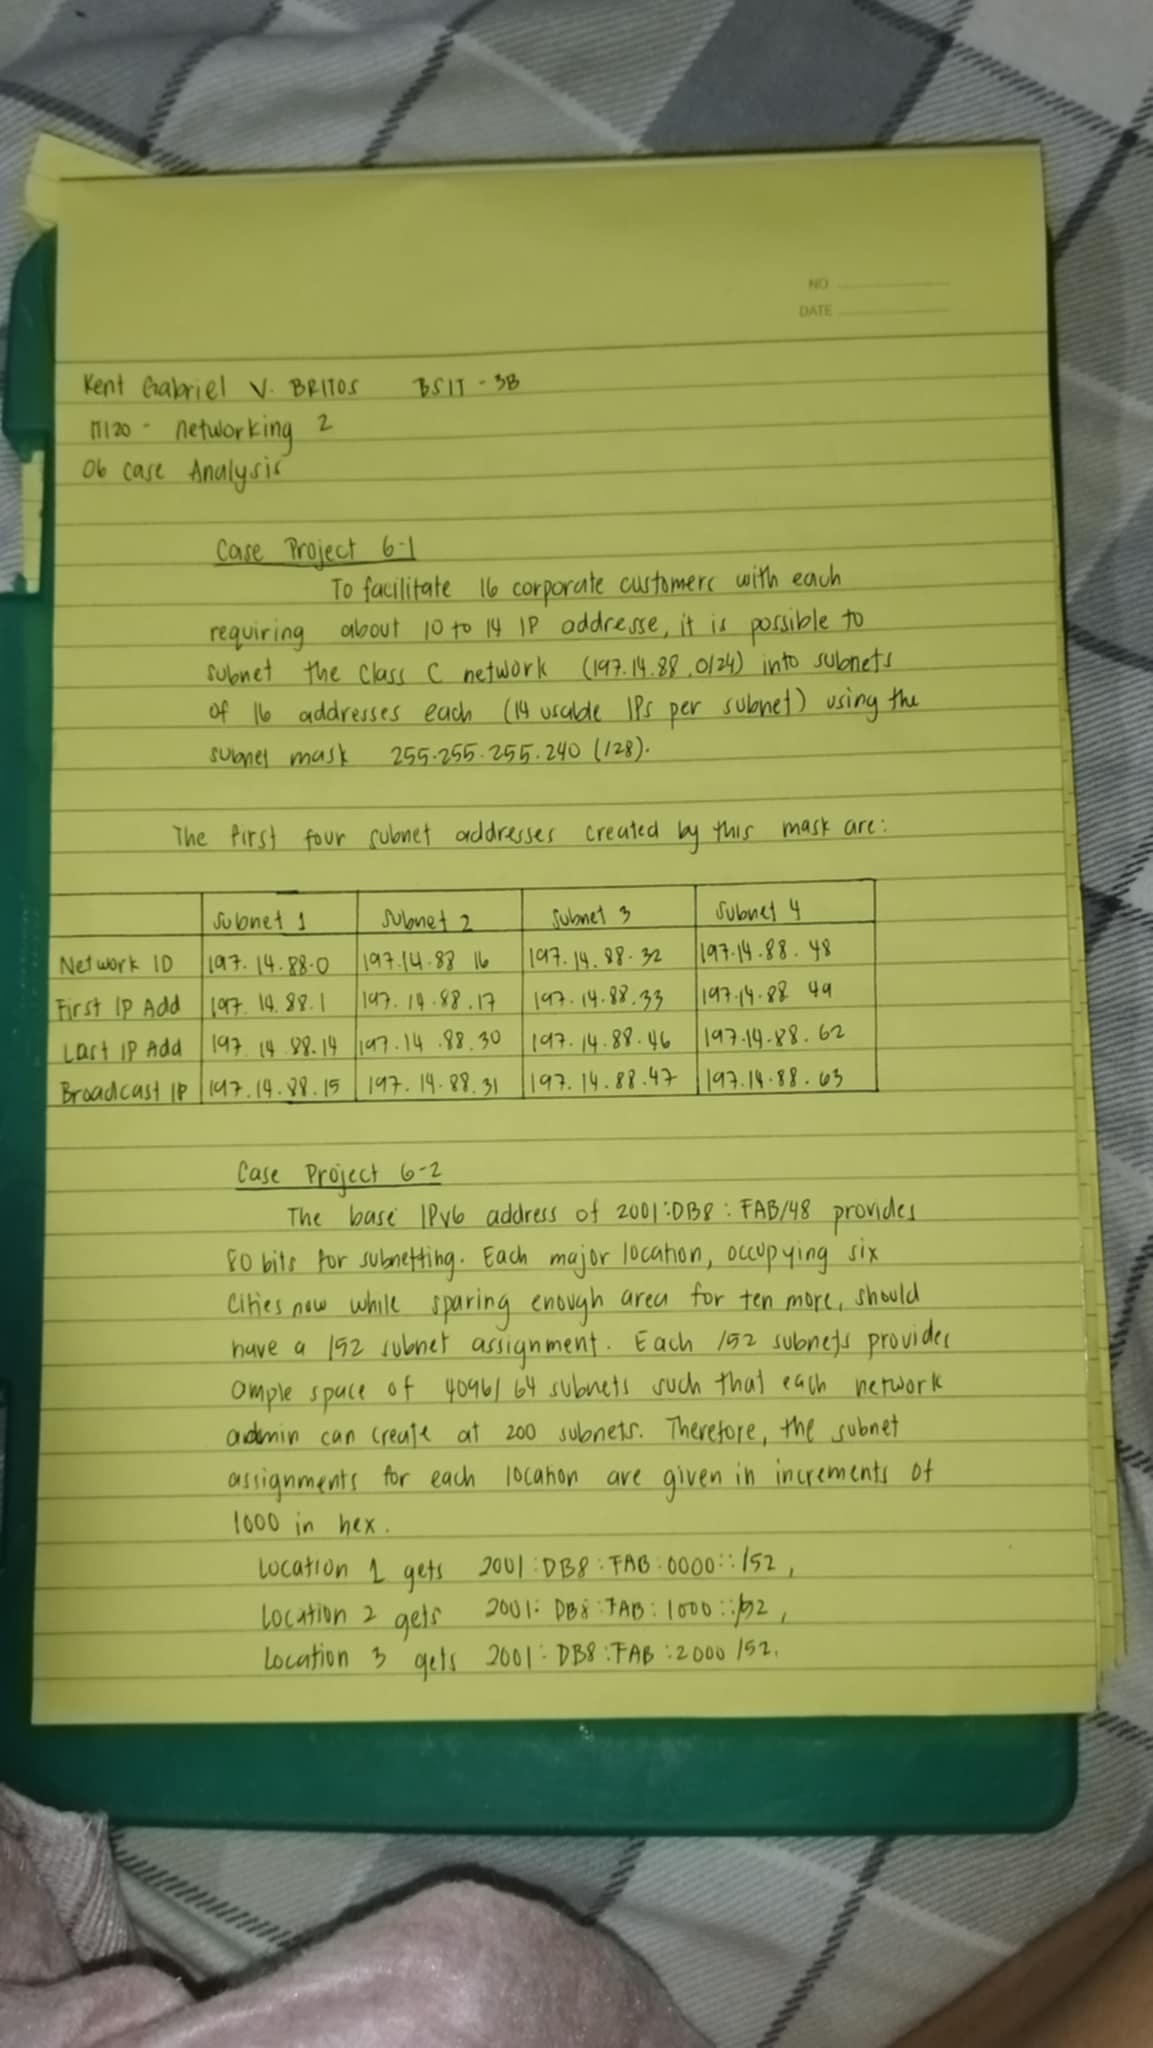 NO
DATE
Kent Gabriel V. BRITOS BSIT - 3B
IT120 - networking 2
06 case Analysis
Case Project 6-1
To facilitate 16 corporate customers with each
requiring about 10 to 14 IP addresse, it is possible to
subnet the Class C network (197.14.88.0/24) into subnets
of 16 addresses each (14 usable IPs per subnet) using the
subnet mask 255.255.255.240 (/28).
The first four subnet addresses created by this mask are:
Subnet 1 Subnet 2 Subnet 3 Subnet 4
Network ID 197.14.88.0 197.14.88 16 197.14.88.32 197.14.88.48
First IP Add 197.14.88.1 197.14.88.17 197.14.88.33 197.14.88 49
Last IP Add 197 14.88.14 197.14.88.30 197.14.88.46 197.14.88.62
Broadcast IP 197.14.88.15 197.14.88.31 197.14.88.47 197.14.88.63
Case Project 6-2
The base IPv6 address of 2001:DB8:FAB/48 provides
80 bits for subnetting. Each major location, occupying six
cities now while sparing enough area for ten more, should
have a /52 subnet assignment. Each /52 subnets provides
ample space of 4096/64 subnets such that each network
admin can create at 200 subnets. Therefore, the subnet
assignments for each location are given in increments of
1000 in hex.
Location 1 gets 2001:DB8:FAB:0000::/52,
Location 2 gets 2001:DB8:FAB:1000::/52,
Location 3 gets 2001:DB8:FAB:2000/52.